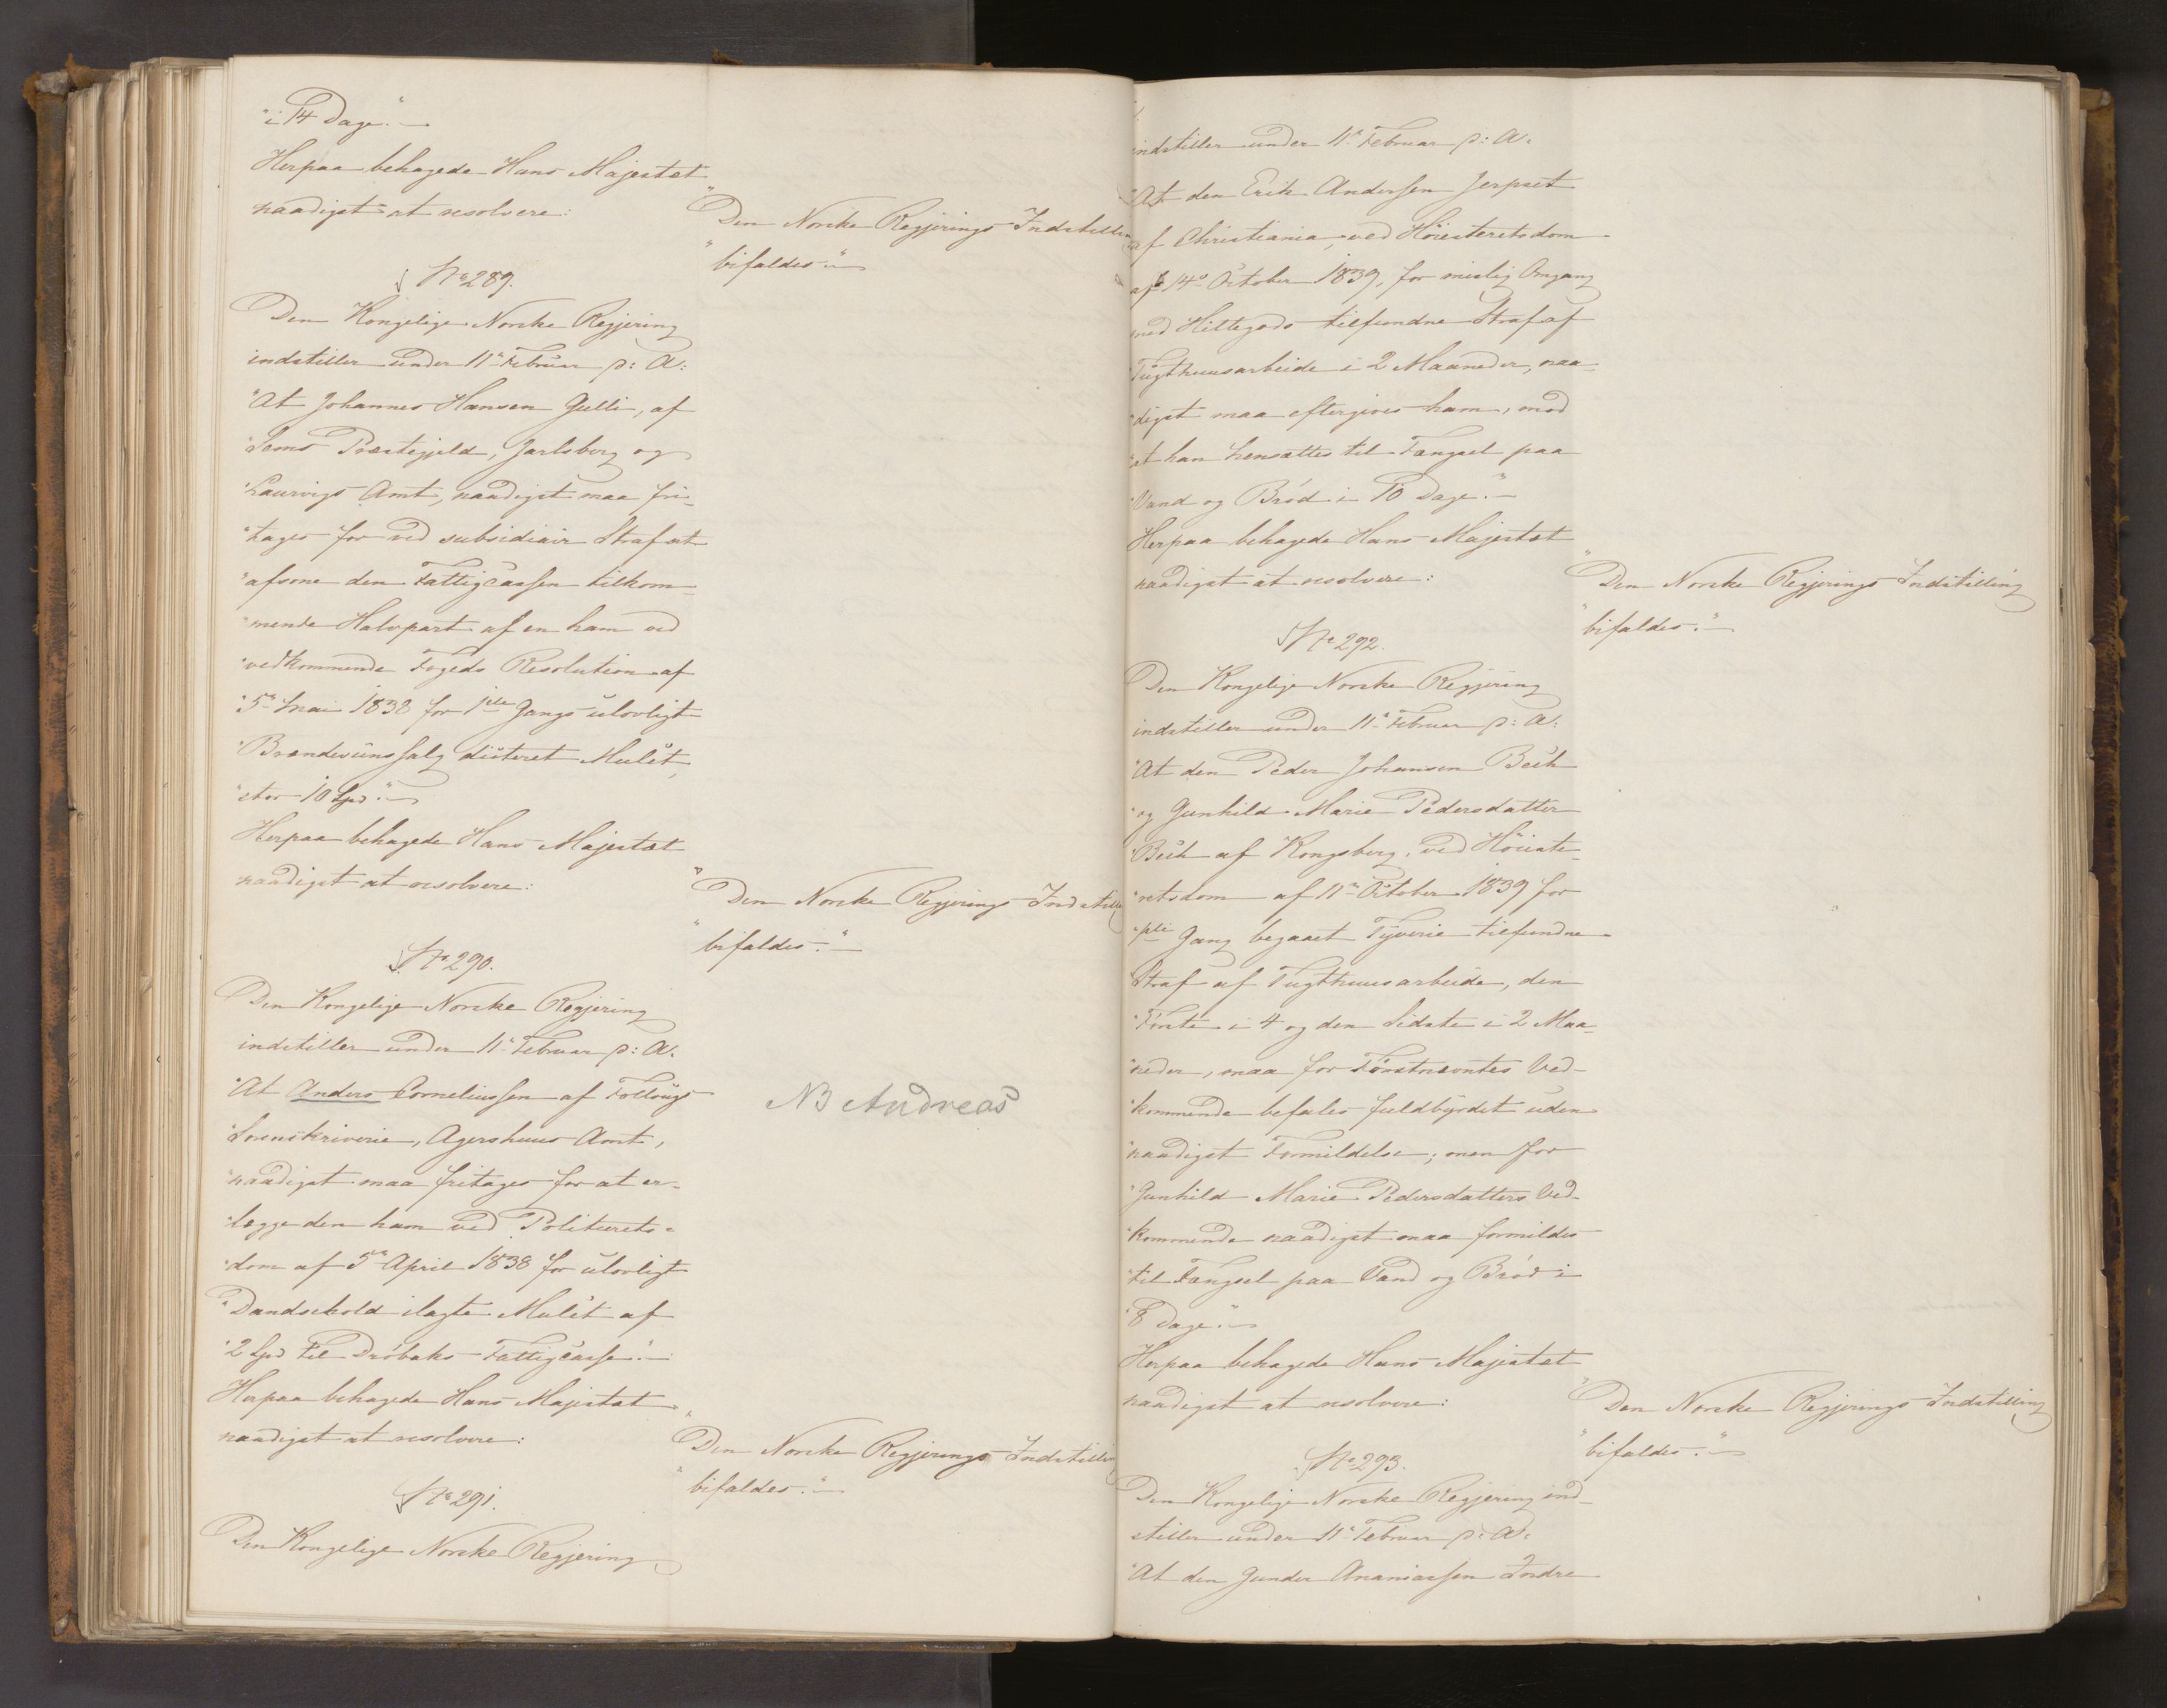 "i 14 Dage."—
Herpaa behagede Hans Majestæt
naadigst at resolvere:
"Den Norske Regjerings Indstilling
"bifaldes."—
No 289.
Den Kongelige Norske Regjering
indstiller under 11te Februar p: A:
"At Johannes Hansen Gulli, af
"Sems Præstegjeld, Jarlsberg og
"Laurvigs Amt, naadigst maa fri-
"tages for ved subsidiair Straf at
"afsone den Fattigcassen tilkom-
"mende Halvpart af en ham ved
"vedkommende Fogeds Resolution af
"5te Mai 1838 for 1ste Gangs ulovligt
"Brændeviinssalg dicteret Mulct,
"stor 10 Spd."—
Herpaa behagede Hans Majestæt
naadigst at resolvere:
"Den Norske Regjerings Indstilling
"bifaldes."—
No 290.
Den Kongelige Norske Regjering
indstiller under 11te Februar p: A:
"At Anders Corneliussen af Follougs
NB Andreas
"Sorenskriverie, Agershuus Amt,
"naadigst maa fritages for at er-
"lægge den ham ved Politierets-
"dom af 5te April 1838 for ulovligt
"Dandsehold ilagte Mulct af
"2 Spd til Drøbaks Fattigcasse."—
Herpaa behagede Hans Majestæt
naadigst at resolvere:
"Den Norske Regjerings Indstilling
"bifaldes."—
No 291.
Den Kongelige Norske Regjering
indstiller under 11te Februar p: A:
"At den Erik Andersen Jerpset
"af Christiania, ved Høiesteretsdom
"af 14de October 1839, for mislig Omgang
"med Hittegods tilfundne Straf af
"Tugthuusarbeide i 2 Maaneder, naa-
"digst maa eftergives ham, mod
"at han hensættes til Fængsel paa
"Vand og Brød i 10 Dage."—
Herpaa behagede Hans Majestæt
naadigst at resolvere:
"Den Norske Regjerings Indstilling
"bifaldes."—
No 292.
Den Kongelige Norske Regjering
indstiller under 11te Februar p: A:
"At den Peder Johansen Bech
"og Gunhild Marie Pedersdatter
"Bech af Kongsberg, ved Høieste-
"retsdom af 11te October 1839 for
"1ste Gang begaaet Tyverie tilfundne
"Straf af Tugthuusarbeide, den
"Første i 4 og den Sidste i 2 Maa-
"neder, maa for Førstnævntes Ved-
"kommende befales fuldbyrdet uden
"naadigst Formildelse; men for
"Gunhild Marie Pedersdatters Ved-
"kommende naadigst maa formildes
"til Fængsel paa Vand og Brød i
"8 Dage."—
Herpaa behagede Hans Majestæt
naadigst at resolvere:
"Den Norske Regjerings Indstilling
"bifaldes."—
No 293.
Den Kongelige Norske Regjering ind-
stiller under 11te Februar p: A:
"At den Gunder Ananiassen Indre